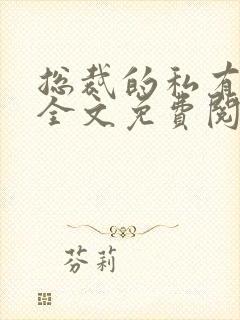 总裁的私有
全文免費閱
芬莉